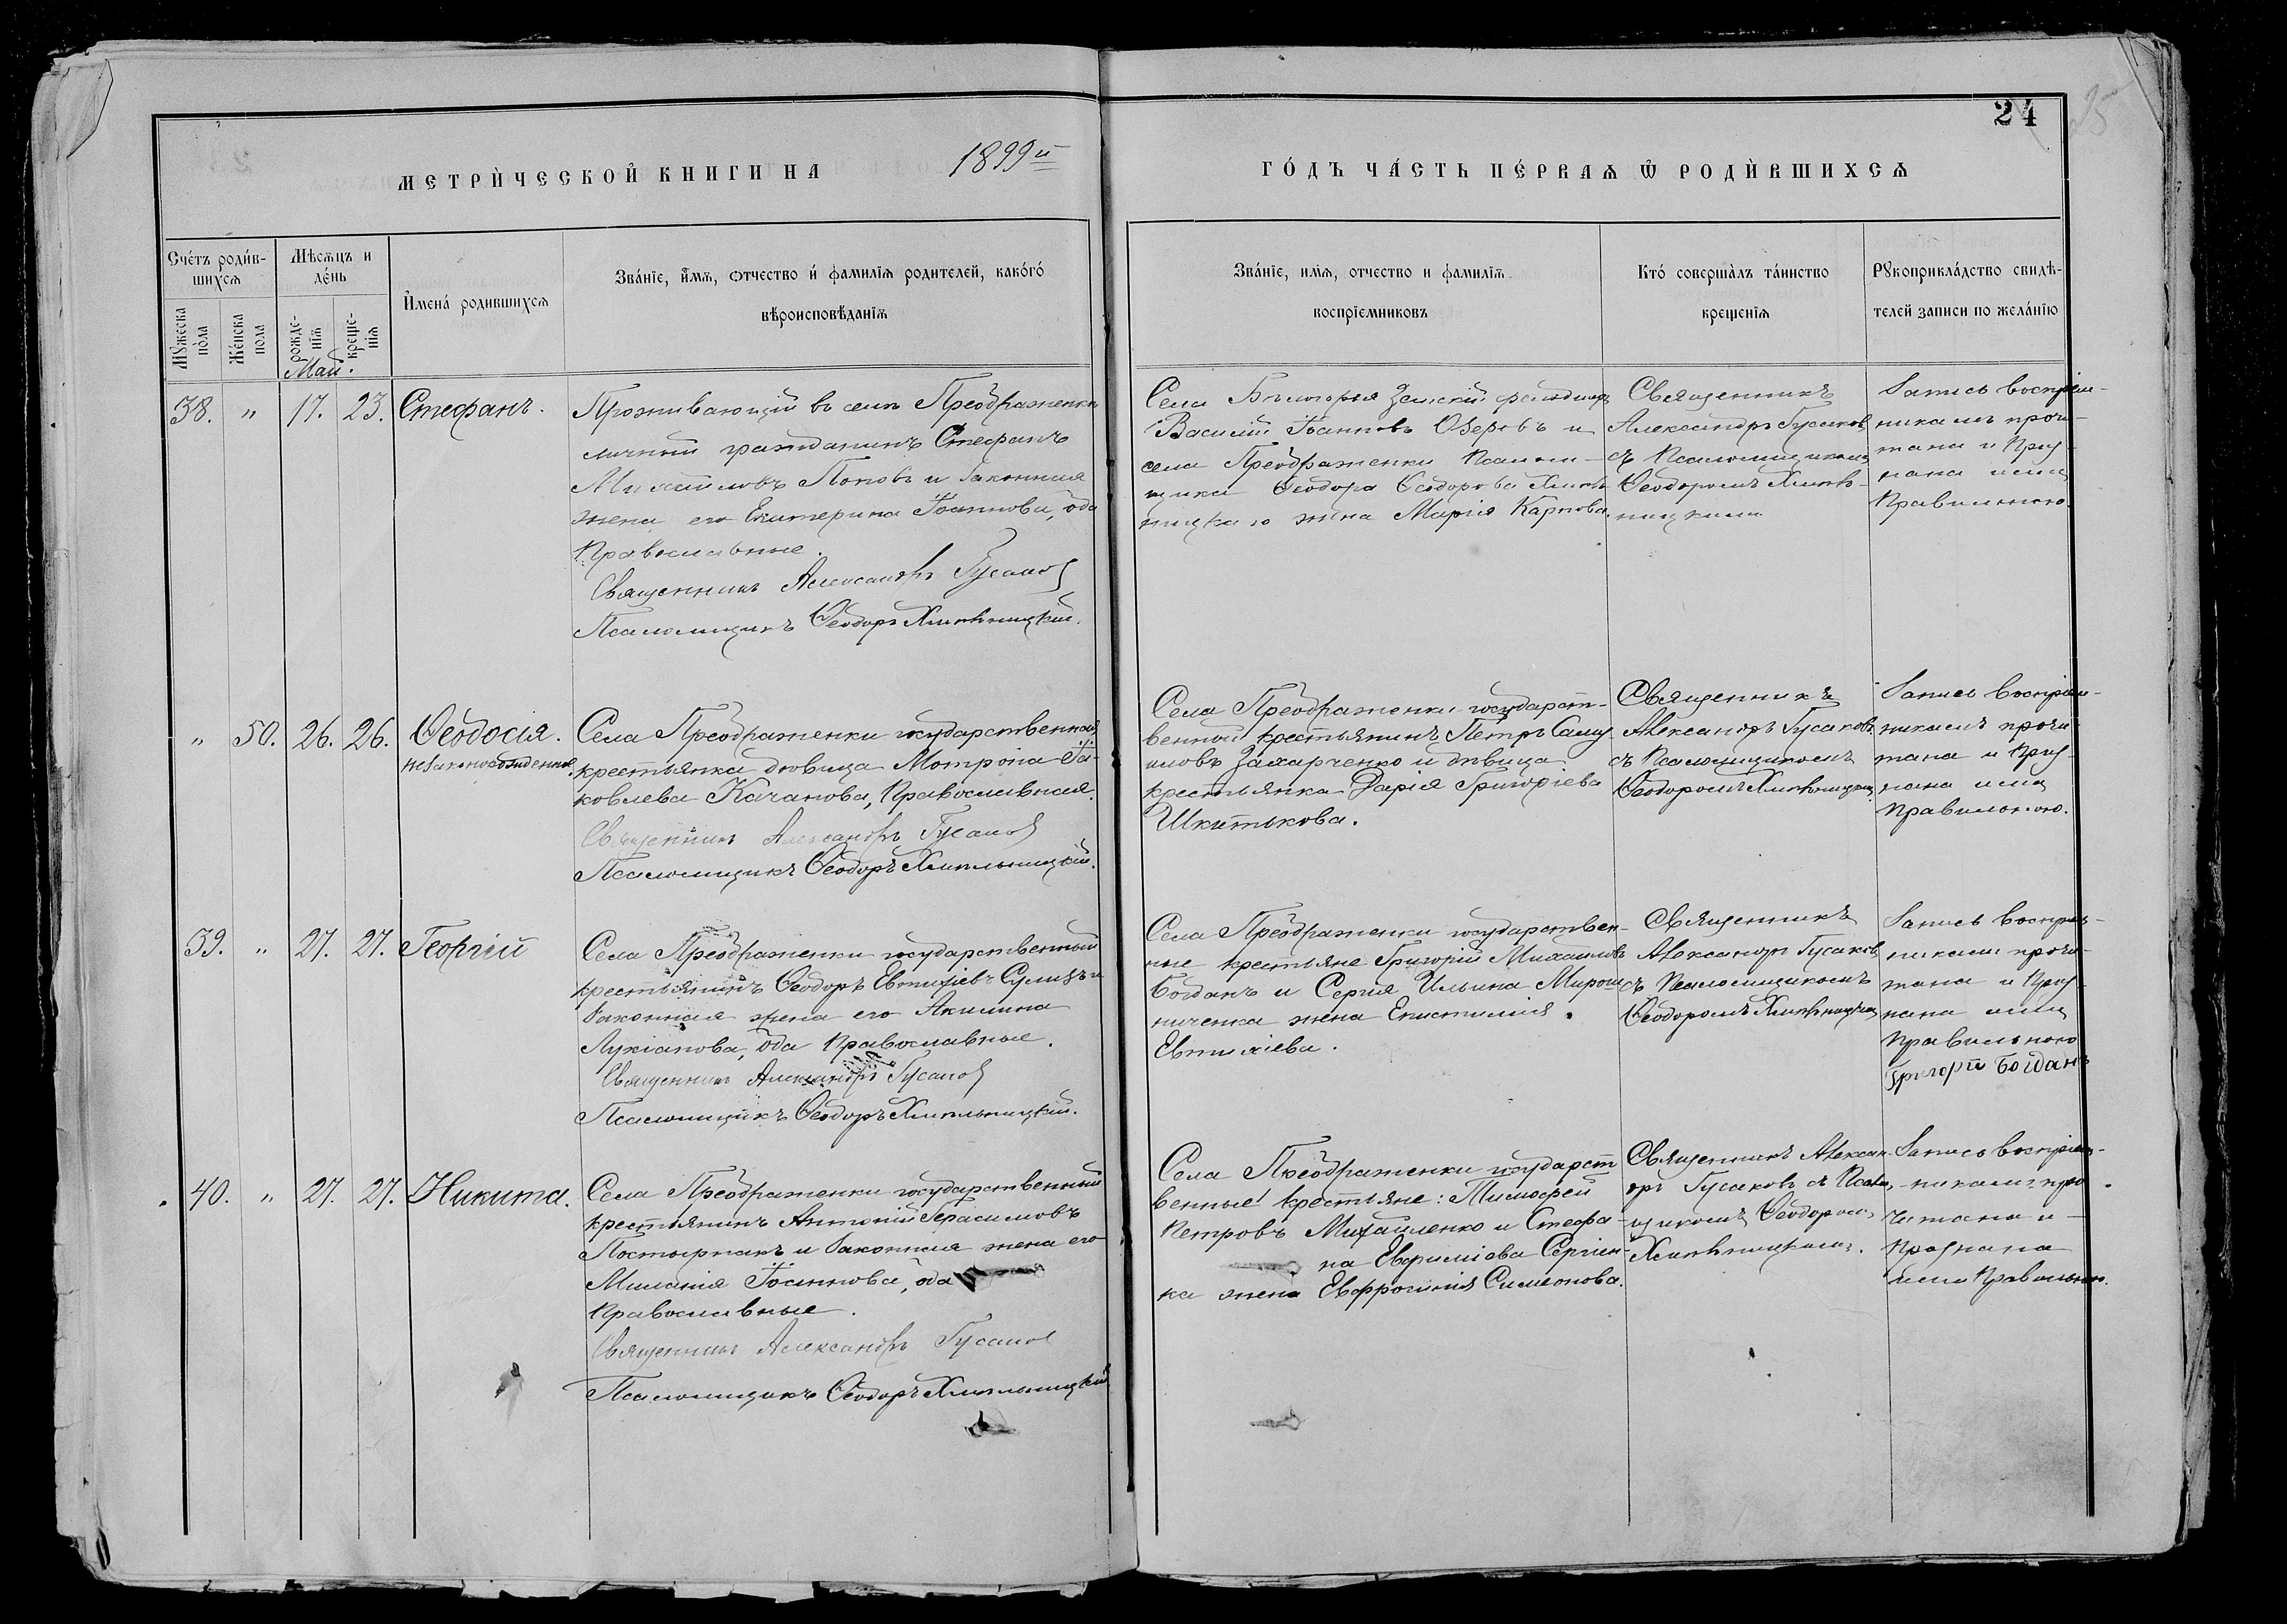 24
25
МЕТРИ́ЧЕСКОЙ КНИГИ НА 1899й
ГО́ДЪ ЧА́СТЬ ПЕ́РВАѦ Ѿ РОДИ́ВШИХСѦ
Сче́тъ роди́в-
шихсѧ
Мꙋжеска
по́ла
Же́нска
пола
Мѣ́сѧцъ и
де́нь
рожде-
нїѧ
креще-
нїѧ
И҆мена́ родившихсѧ
Зва́нїе, и҆́мѧ, ѻтчество и́ фамилїѧ родителей, како́гѡ́
вѣроисповѣ́данїѧ
Зва́нїе, имѧ, отчество и фамилїѧ
воспрїемниковъ
Кто́ соверша́лъ та́инство
крещенїѧ
Рꙋкоприкла́дство свидѣ-
телей записи по жела́нїю
Май.
38. " 17. 23. Стефанъ.
Проживающій въ селѣ Преображенкѣ
личный гражданинъ Стефанъ
Михаиловъ Поповъ и законная
жена его Екатерина Іоаннова, оба
Православные.
Священникъ Александръ Гусаковъ
Псаломщикъ Ѳеодоръ Хмѣльницкій.
Села Бѣлогорья Земскій фельдшеръ
Василій Іоанновъ Озеровъ и
села Преображенки Псалом-
щика Ѳеодора Ѳеодорова Хмѣль-
ницкаго жена Марія Карпова.
Священникъ
Александръ Гусаковъ
съ Псаломщикомъ
Ѳеодоромъ Хмѣль-
ницкимъ
Запись воспріем-
никамъ прочи-
тана и приз-
нана ими
Правильною.
" 50. 26. 26. Ѳеодосія.
незаконнорожденная.
Села Преображенки государственная
крестьянка дѣвица Мотрона Іа-
ковлева Качанова, Православная.
Священникъ Александръ Гусаковъ
Псаломщикъ Ѳеодоръ Хмѣльницкій.
Села Преображенки государст-
венный крестьянинъ Петръ Саму
иловъ Захарченко и дѣвица
крестьянка Дарія Григоріева
Шкитькова.
Священникъ
Александръ Гусаковъ
съ Псаломщикомъ
Ѳеодоромъ Хмѣльницкимъ.
Запись воспріем-
никамъ прочи-
тана и приз-
нана ими
Правильною.
39. " 27. 27. Георгій
Села Преображенки государственный
крестьянинъ Ѳеодоръ Евтихіевъ и
законная жена его Акилина
Лукіанова, оба Православные.
Священникъ Александръ Гусаковъ
Псаломщикъ Ѳеодоръ Хмѣльницкій.
Села Преображенки государствен-
ные крестьяне Григорій Михаиловъ
Богданъ и Сергія Ильина Мирош
ниченка жена Епистимія
Евтихіева.
Священникъ
Александръ Гусаковъ
съ Псаломщикомъ
Ѳеодоромъ Хмѣльницкимъ
Запись воспріем-
никами прочи-
тана и приз-
нана ими
Правильною
Григорій Богданъ
40. " 27. 27. Никита.
Села Преображенки государственный
крестьянинъ Антоній Герасимовъ
и законная жена его
Миланія Іоаннова, оба
Православные.
Священникъ Александръ Гусаковъ
Псаломщикъ Ѳеодоръ Хмѣльницкій
Села Преображенки государст
венные крестьяне: Тимофей
Петровъ Михайленко и Стефа-
на Евфиміева Сергіен-
ка жена Евфросинія Симеонова.
Священникъ Алексан-
дръ Гусаковъ съ Псалом-
щикомъ Ѳеодоромъ
Хмѣльницкимъ.
Запись воспріем-
никамъ про
читана и
признана
ими Правильною.